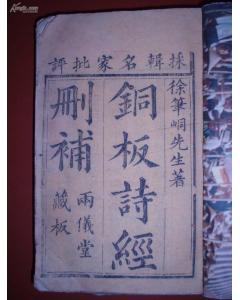 採輯名家批評
徐筆峒先生著
銅板詩經
刪補
兩儀堂
藏板